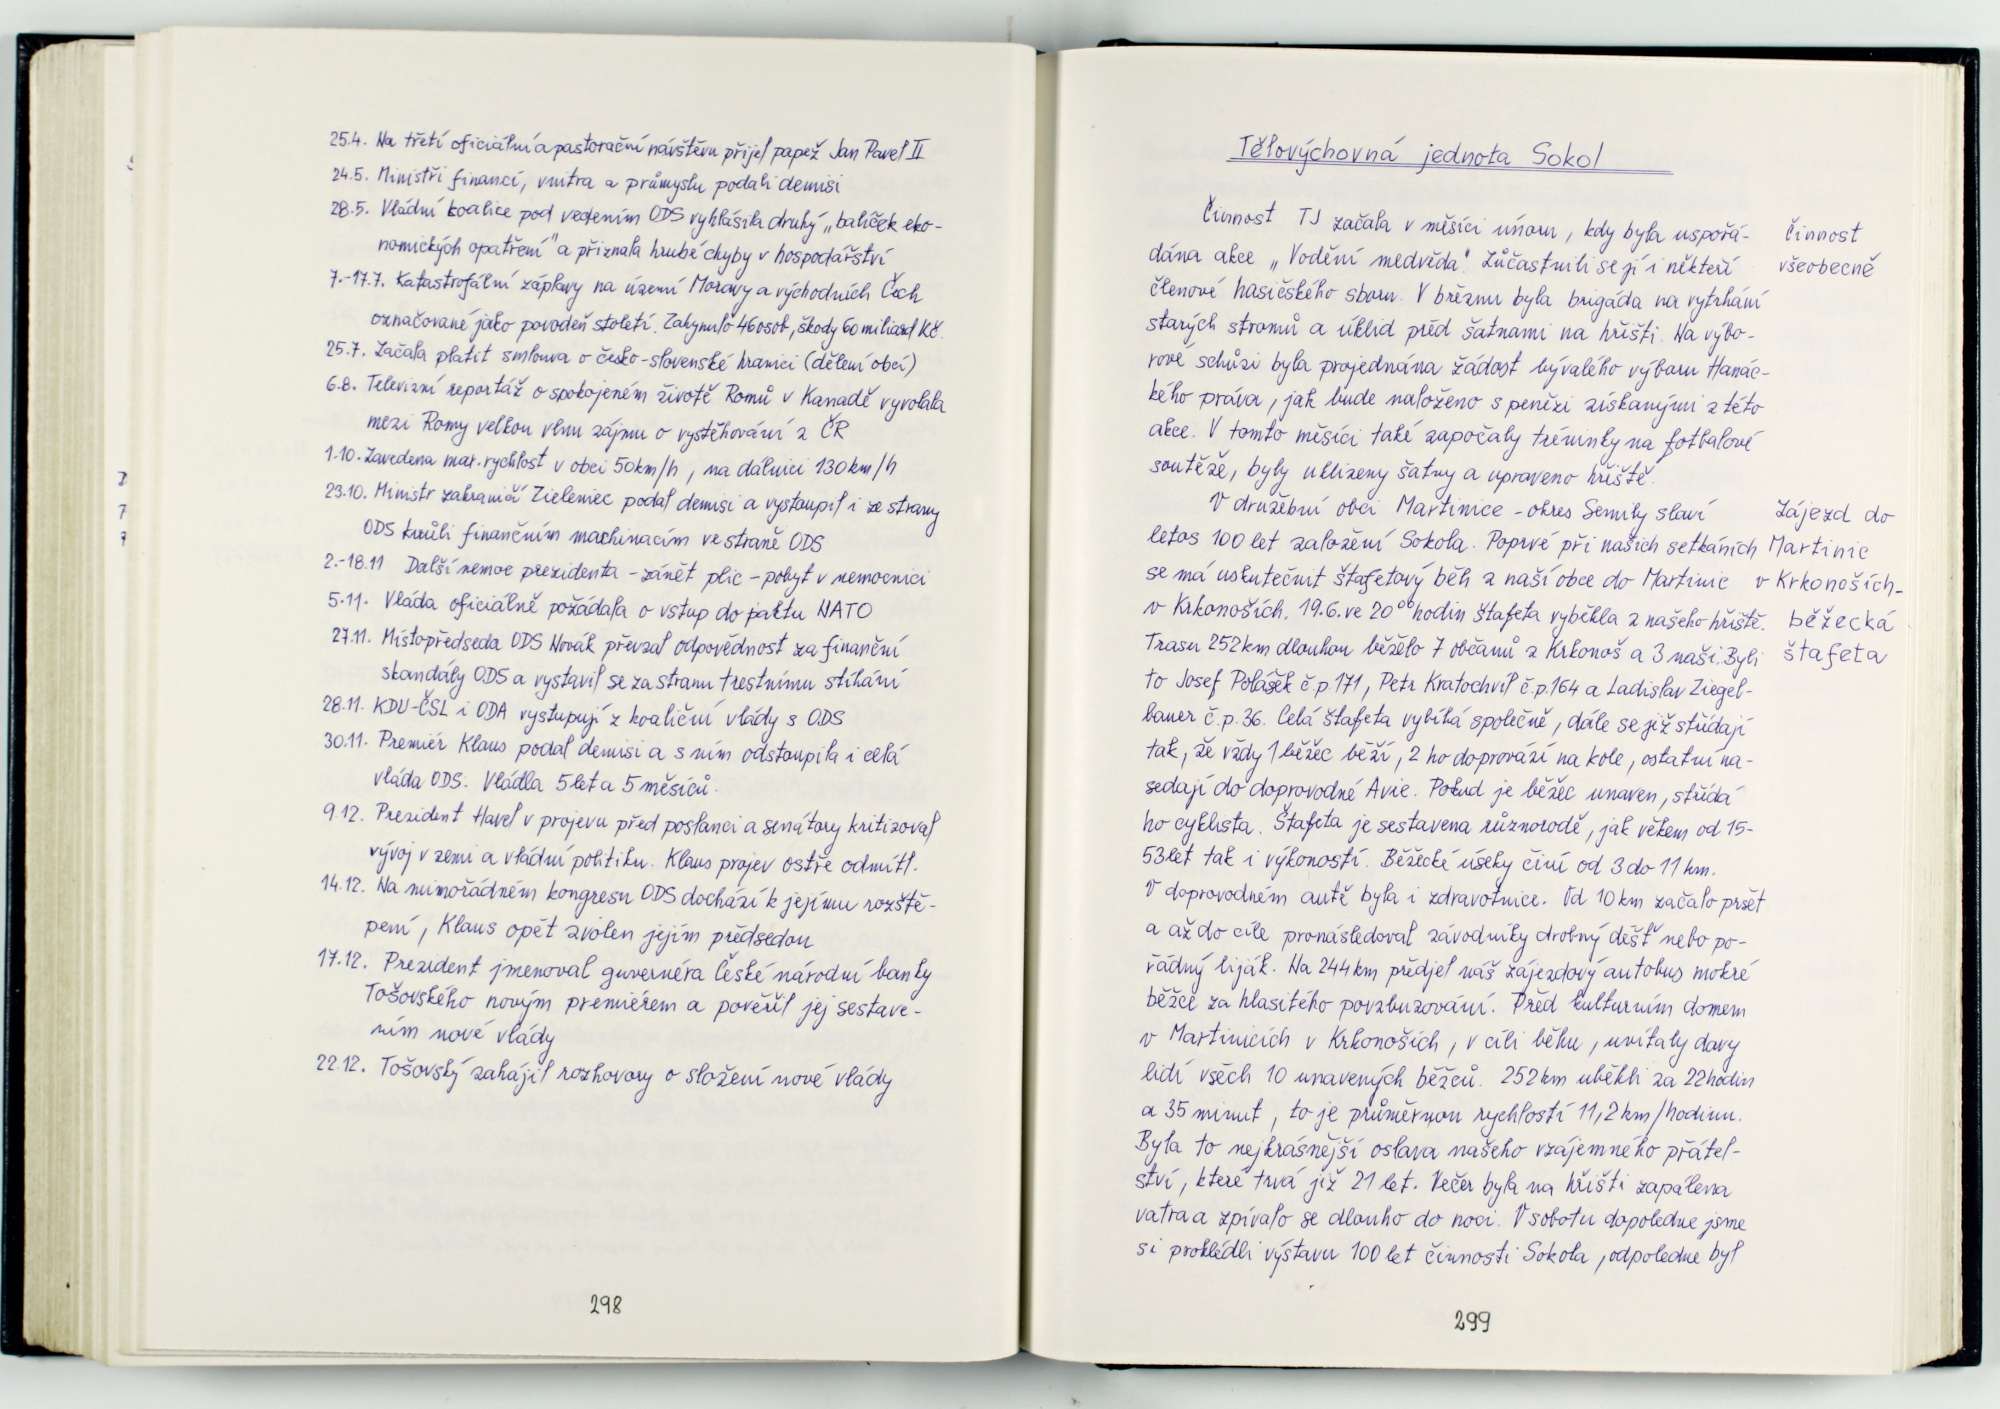 25.4. Na třetí oficiální a pastorační návštěvu přijel papež Jan Pavel II
24.5. Ministři financí, vnitra a průmyslu podali demisi
28.5. Vládní koalice pod vedením ODS vyhlásila druhý „balíček eko-
nomických opatření" a přiznala hrubé chyby v hospodářství
7.-17.7. Katastrofální záplavy na území Moravy a východních Čech
označované jako povodeň století. Zahynulo 46 osob, škody 60 miliard Kč.
25.7. Začala platit smlouva o česko-slovenské hranici (dělení obcí)
6.8. Televizní reportáž o spokojeném životě Romů v Kanadě vyvolala
mezi Romy velkou vlnu zájmu o vystěhování z ČR
1.10. Zavedena max. rychlost v obci 50km/h, na dálnici 130km/h
23.10. Ministr zahraničí Zieleniec podal demisi a vystoupil i ze strany
ODS kvůli finančním machinacím ve straně ODS
2.-18.11 Další nemoc prezidenta - zánět plic - pobyt v nemocnici
5.11. Vláda oficiálně požádala o vstup do paktu NATO
27.11. Místopředseda ODS Novák převzal odpovědnost za finanční
skandály ODS a vystavil se za stranu trestnímu stíhání
28.11. KDU-ČSL i ODA vystupují z koaliční vlády s ODS
30.11. Premiér Klaus podal demisi a s ním odstoupila i celá
vláda ODS. Vládla 5 let a 5 měsíců.
9.12. Prezident Havel v projevu před poslanci a senátory kritizoval
vývoj v zemi a vládní politiku. Klaus projev ostře odmítl.
14.12. Na mimořádném kongresu ODS dochází k jejímu rozště-
pení, Klaus opět zvolen jejím předsedou
17.12. Prezident jmenoval guvernéra České národní banky
Tošovského novým premiérem a pověřil jej sestave-
ním nové vlády
22.12. Tošovský zahájil rozhovory o složení nové vlády
298
Tělovýchovná jednota Sokol
Činnost TJ začala v měsíci únoru, kdy byla uspořá-
dána akce „Vodění medvěda". Zůčastnili se jí i někteří
členové hasičského sboru. V březnu byla brigáda na vytrhání
starých stromů a úklid před šatnami na hřišti. Na výbo-
rové schůzi byla projednána žádost bývalého výboru Hanác-
kého práva, jak bude naloženo s penězi získanými z této
akce. V tomto měsíci také započaly tréninky na fotbalové
soutěže, byly uklizeny šatny a upraveno hřiště.
Činnost
všeobecně
V družební obci Martinice - okres Semily slaví
letos 100 let založení Sokola. Poprvé při našich setkáních
se má uskutečnit štafetový běh z naší obce do Martinic
v Krkonoších. 19.6. ve 20⁰⁰ hodin štafeta vyběhla z našeho hřiště.
Trasu 252km dlouhou běželo 7 občanů z Krkonoš a 3 naši. Byli
to Josef Polášek č.p. 171, Petr Kratochvíl č.p. 164 a Ladislav Ziegel-
bauer č.p. 36. Celá štafeta vybíhá společně, dále se již střídají
tak, že vždy 1 běžec běží, 2 ho doprovází na kole, ostatní na-
sedají do doprovodné Avie. Pokud je běžec unaven, střídá
ho cyklista. Štafeta je sestavena různorodě, jak věkem od 15-
53 let tak i výkoností. Běžecké úseky činí od 3 do 11 km.
V doprovodném autě byla i zdravotnice. Od 10 km začalo pršet
a až do cíle pronásledoval závodníky drobný déšť nebo po-
řádný liják. Na 244 km předjel náš zájezdový autobus mokré
běžce za hlasitého povzbuzování. Před kulturním domem
v Martinicích v Krkonoších, v cíli běhu, uvítaly davy
lidí všech 10 unavených běžců. 252 km uběhli za 22 hodin
a 35 minut, to je průměrnou rychlostí 11,2 km/hodinu.
Byla to nejkrásnější oslava našeho vzájemného přátel-
ství, které trvá již 21 let. Večer byla na hřišti zapálena
vatra a zpívalo se dlouho do noci. V sobotu dopoledne jsme
si prohlédli výstavu 100 let činnosti Sokola, odpoledne byl
Zájezd do
Martinic
v Krkonoších-
běžecká
štafeta
299